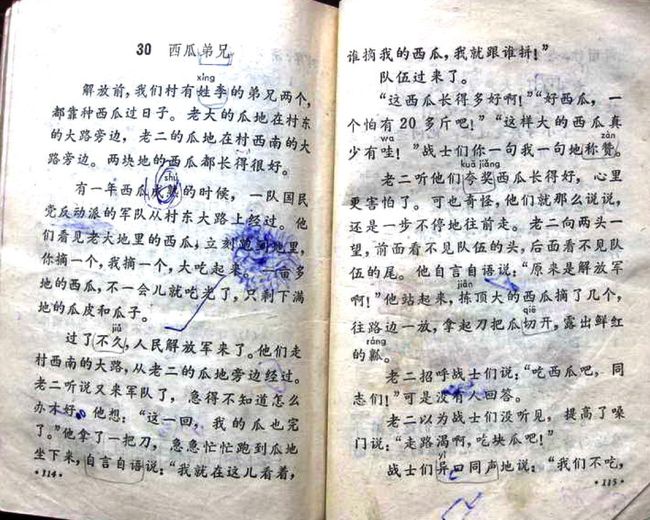 30 西瓜弟兄
xìng
解放前，我们村有姓李的弟兄两个，
都靠种西瓜过日子。老大的瓜地在村东
的大路旁边，老二的瓜地在村西南的大
路旁边。两块地的西瓜都长得很好。
shú
有一年西瓜成熟的时候，一队国民
党反动派的军队从村东大路上经过。他
们看见老大地里的西瓜，立刻跑到地里，
你摘一个，我摘一个，大吃起来。一亩多
地的西瓜，不一会儿就吃光了，只剩下满
地的瓜皮和瓜子。
过了不久，人民解放军来了。他们走
村西南的大路，从老二的瓜地旁边经过。
老二听说又来军队了，急得不知道怎么
办才好。他想：“这一回，我的瓜也完
了。”他拿了一把刀，急急忙忙跑到瓜地
坐下来，自言自语说：“我就在这儿看着，
·114·
谁摘我的西瓜，我就跟谁拼！”
队伍过来了。
“这西瓜长得多好啊！”“好西瓜，一
个怕有20多斤吧！”“这样大的西瓜真
wa zàn
少有哇！”战士们你一句我一句地称赞。
kuā jiǎng
老二听他们夸奖西瓜长得好，心里
更害怕了。可也奇怪，他们就那么说说，
还是一步不停地往前走。老二向两头一
望，前面看不见队伍的头，后面看不见队
伍的尾。他自言自语说：“原来是解放军
jiǎn
啊！”他站起来，拣顶大的西瓜摘了几个，
qiē
往路边一放，拿起刀把瓜切开，露出鲜红
ráng
的瓤。
老二招呼战士们说：“吃西瓜吧，同
志们！”可是没有人回答。
老二以为战士们没听见，提高了嗓
门说：“走路渴啊，吃块瓜吧！”
yì
战士们异口同声地说：“我们不吃，
·115·